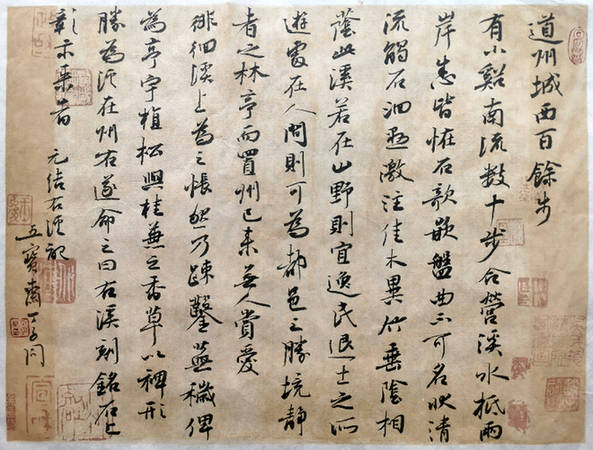 道州城西百餘步
有小谿南流數十步合營溪水抵兩
岸悉皆恠石欹嵌盤曲不可名狀清
流觸石洄懸激注佳木異竹垂陰相
蔭此溪若在山野則宜逸民退士之所
遊處在人間則可為都邑之勝境靜
者之林亭而置州已来無人賞愛
徘徊溪上為之悵然乃疎鑿蕪穢俾
為亭宇植松與桂兼之香草以裨形
勝為溪在州右遂命之曰右溪刻銘石上
彰示来者 元结右溪記
五寶齋